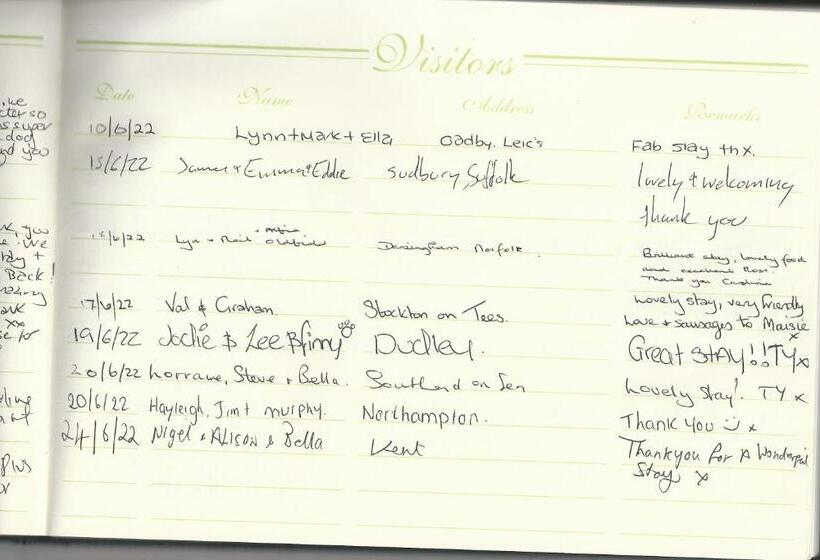 Visitors
Date Name Address Remarks
10/6/22 Lynn+Mark+Ella Oadby. Leic's Fab stay thx.
15/6/22 James & Emma & Eddie Sudbury, Suffolk lovely & welcoming
thank you
/6/22 Lyn + Neil Dersingham Norfolk. Brilliant stay, lovely food
and excellent host.
Thank you Caroline
17/6/22 Val & Graham. Stockton on Tees. Lovely stay, very friendly
Love + sausages to Maisie x
19/6/22 Jodie & Lee & finny Dudley. Great stAY!! TYx
20/6/22 Lorraine, Steve + Bella. Southend on Sea Lovely stay! TY x
20/6/22 Hayleigh, Jim + murphy. Northampton. Thank you x
24/6/22 Nigel & Alison & Bella Kent Thankyou for A Wonderful
Stay x
, we
so
super
dog
and you
you
we
stay +
Back!
xx
for
Plus
or